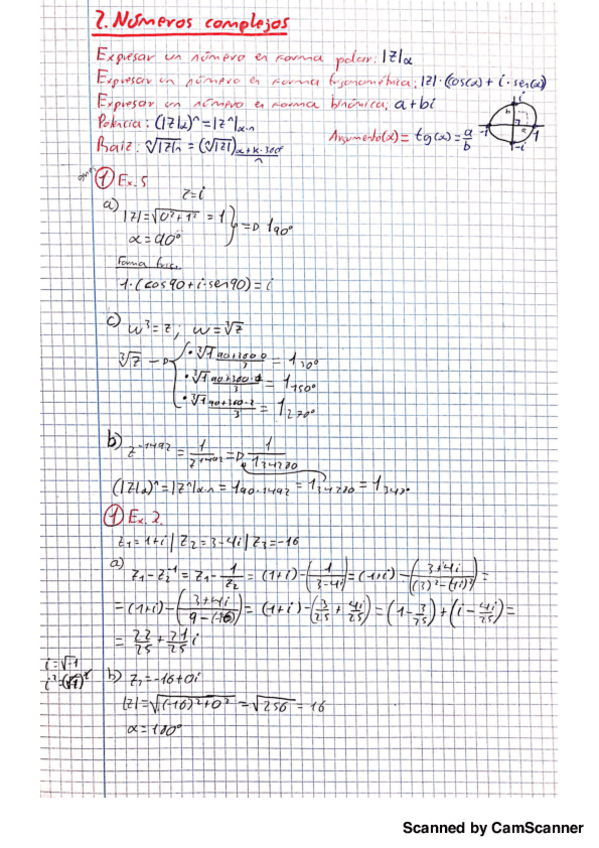 2. Números complejos
Expresar un número en forma polar: |z|α
Expresar un número en forma trigonométrica: |z|·(cos(α) + i·sen(α))
Expresar un número en forma binómica: a+bi
Potencia: (|z|α)^n = |z^n|α·n
Argumento(α) = tg(α) = a/b
-i i 1 -i
Raíz: ⁿ√|z|α = (ⁿ√|z|)(α+k·360º)/n
① Ex. 5
z=i
a) |z|=√(0²+1²) = 1
α=90º } ⇒ 1 90º
Forma trig.
1·(cos90+i·sen90)=i
c) w³=z; w=³√z
³√z → · ³√1 (90+360·0)/3 = 1 30º
· ³√1 (90+360·1)/3 = 1 150º
· ³√1 (90+360·2)/3 = 1 270º
b) z^-1492 = 1/z^1492 ⇒ 1/1 134280
(|z|α)^n=|z^n|α·n = 1 90·1492 = 1 134280 = 1 340º
① Ex. 2.
z₁=1+i | z₂=3-4i | z₃=-16
a) z₁-z₂^-1 = z₁ - 1/z₂ = (1+i) - (1/(3-4i)) = (1+i) - ((3+4i)/((3)²-(4i)²)) =
= (1+i) - ((3+4i)/(9-(-16))) = (1+i) - (3/25 + 4i/25) = (1-3/25) + (i-4i/25) =
= 22/25 + 21/25 i
i=√-1
i²=(√-1)²
b) z₃=-16+0i
|z|=√((-16)²+0²) = √256 = 16
α=180º
Scanned by CamScanner